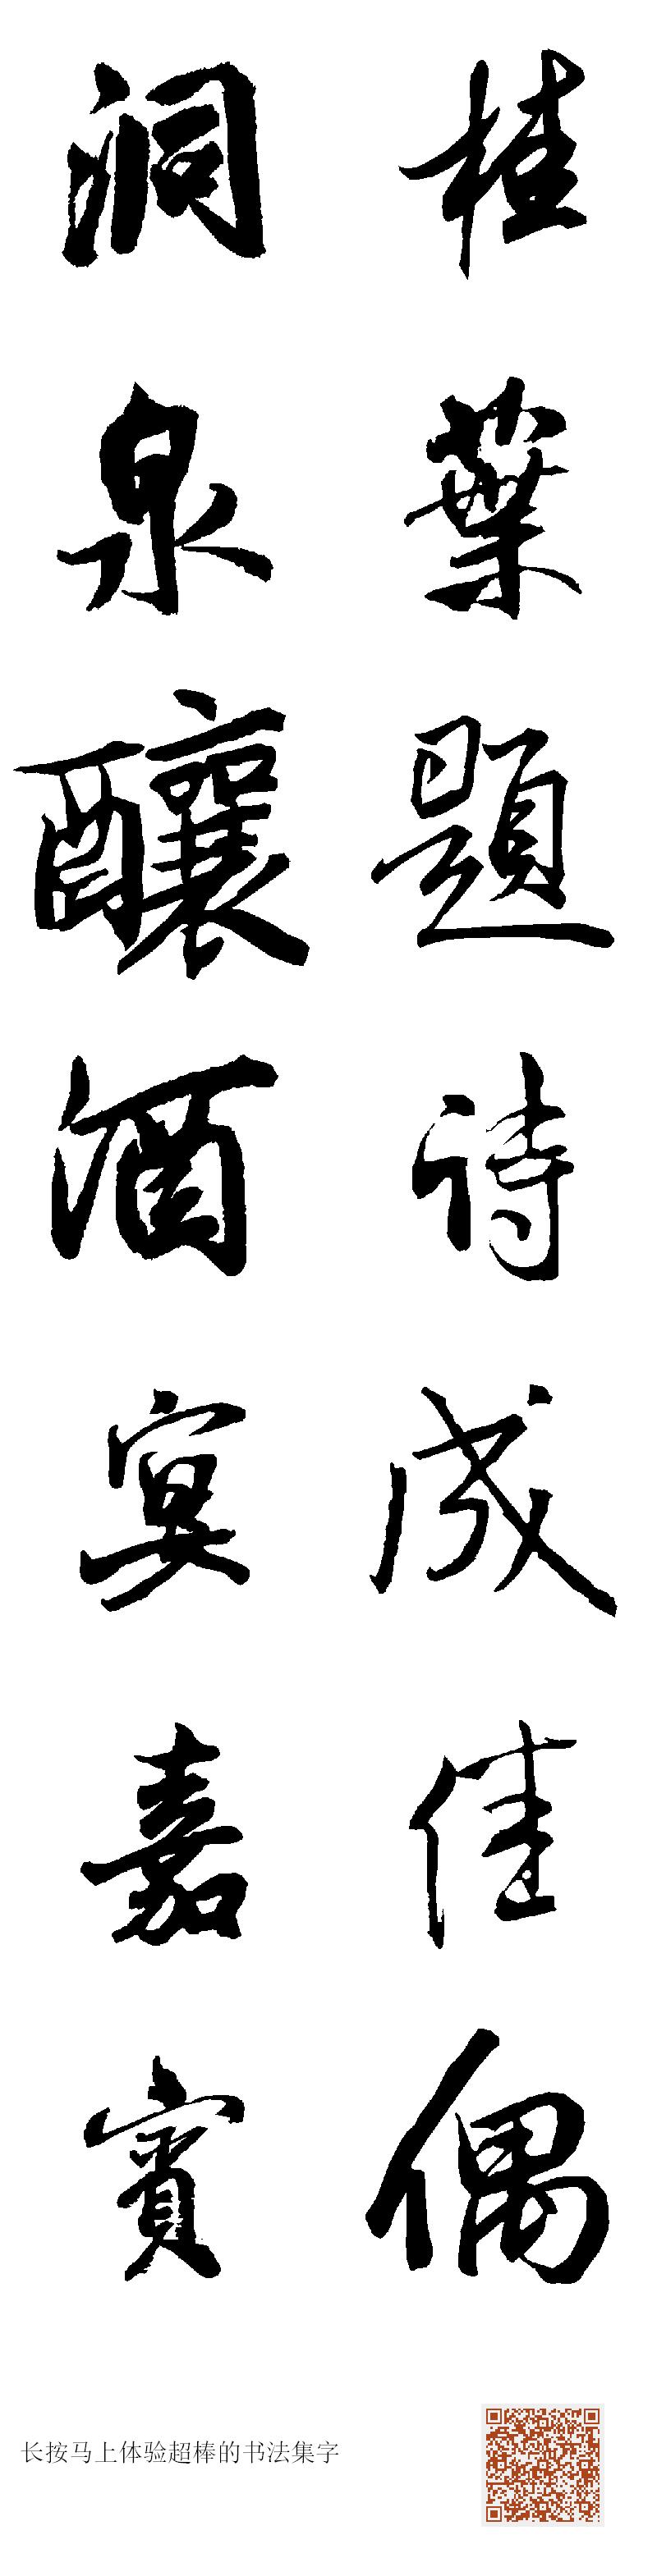 桂葉題诗成佳偶
洞泉釀酒宴嘉賓
长按马上体验超棒的书法集字